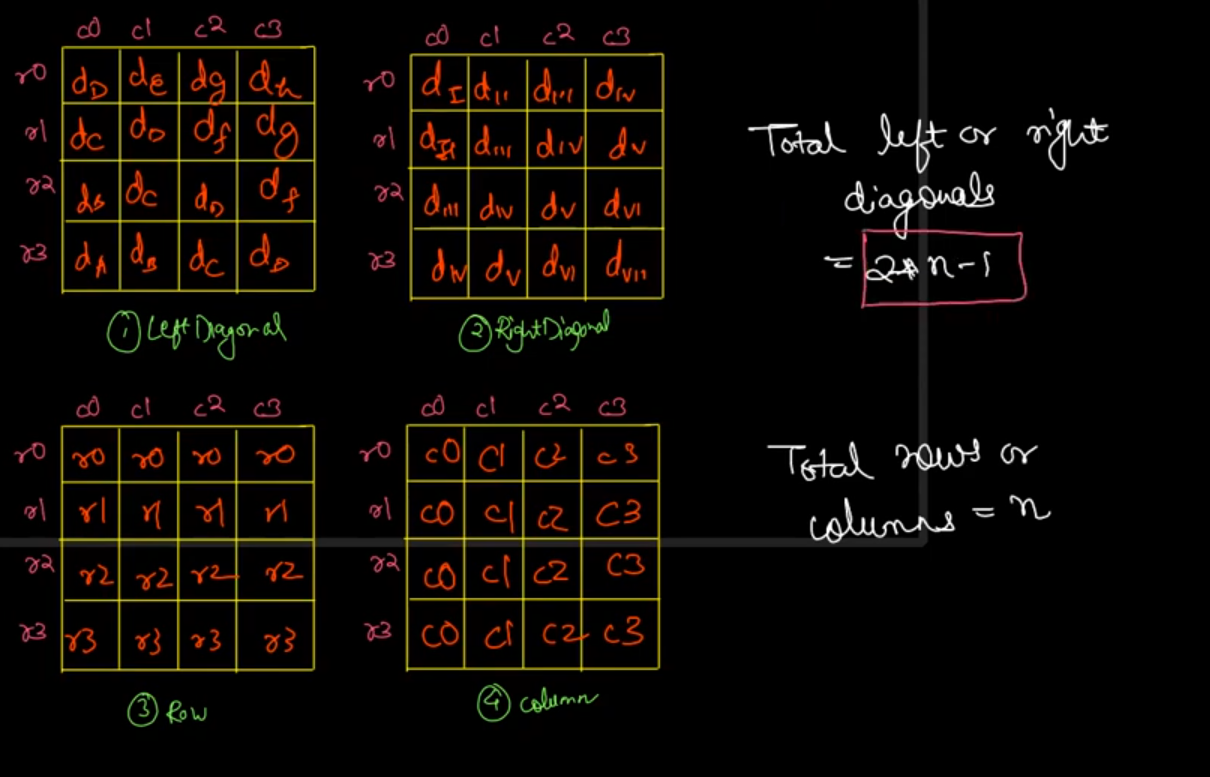 c0 c1 c2 c3
r0 dD dE dg dh
r1 dC dD df dg
r2 dB dC dD df
r3 dA dB dC dD
① Left Diagonal
c0 c1 c2 c3
r0 dI dII dIII dIV
r1 dII dIII dIV dV
r2 dIII dIV dV dVI
r3 dIV dV dVI dVII
② Right Diagonal
Total left or right
diagonals
= 2*n-1
c0 c1 c2 c3
r0 r0 r0 r0 r0
r1 r1 r1 r1 r1
r2 r2 r2 r2 r2
r3 r3 r3 r3 r3
③ Row
c0 c1 c2 c3
r0 c0 c1 c2 c3
r1 c0 c1 c2 c3
r2 c0 c1 c2 c3
r3 c0 c1 c2 c3
④ column
Total rows or
columns = n